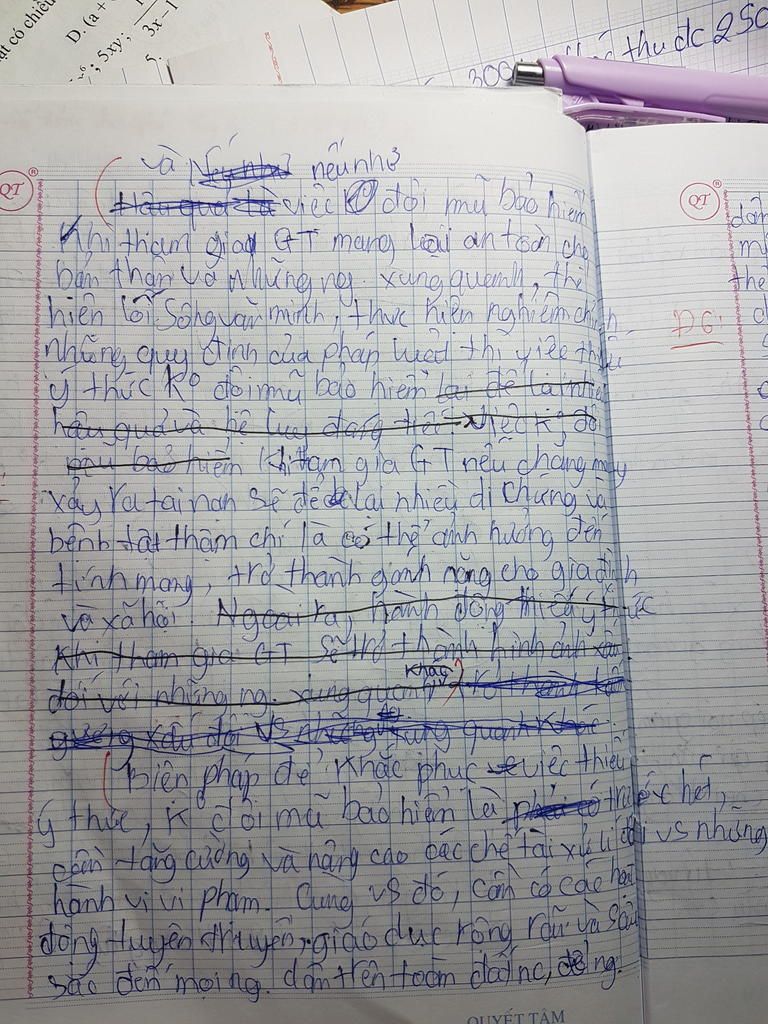 ạt có chiều
D. (a +
; 5xy;
3x-1
5.
300
thuốc 250
QT
QT
và nếu như
Hậu quả là việc đội mũ bảo hiểm
Khi tham gia GT mang lại an toàn cho
bản thân và những ng. xung quanh, thể
hiện lối sống văn minh, thực hiện nghiêm chỉnh
những quy định của pháp luật thì việc thiếu
ý thức ko đội mũ bảo hiểm lại để lại nhiều
hậu quả và hệ lụy đáng tiếc. Việc k đội
mũ bảo hiểm Khi tham gia GT nếu chẳng may
xảy ra tai nạn sẽ để lại nhiều di chứng và
bệnh tật thậm chí là có thể ảnh hưởng đến
tính mạng, trở thành gánh nặng cho gia đình
và xã hội. Ngoài ra, hành động thiếu ý thức
khi tham gia GT sẽ trở thành hình ảnh xấu
khác
đối với những ng. xung quanh
gương xấu đối vs những xung quanh khác.
Biện pháp để khắc phục việc thiếu
ý thức, ko đội mũ bảo hiểm là phải có trước hết,
cần tăng cường và nâng cao các chế tài xử lí đối vs những
hành vi vi phạm. Cùng vs đó, cần có các hoạt
động tuyên truyền, giáo dục rộng rãi và sâu
sắc đến mọi ng. dân trên toàn đất nc,
ĐG:
QUYẾT TÂM